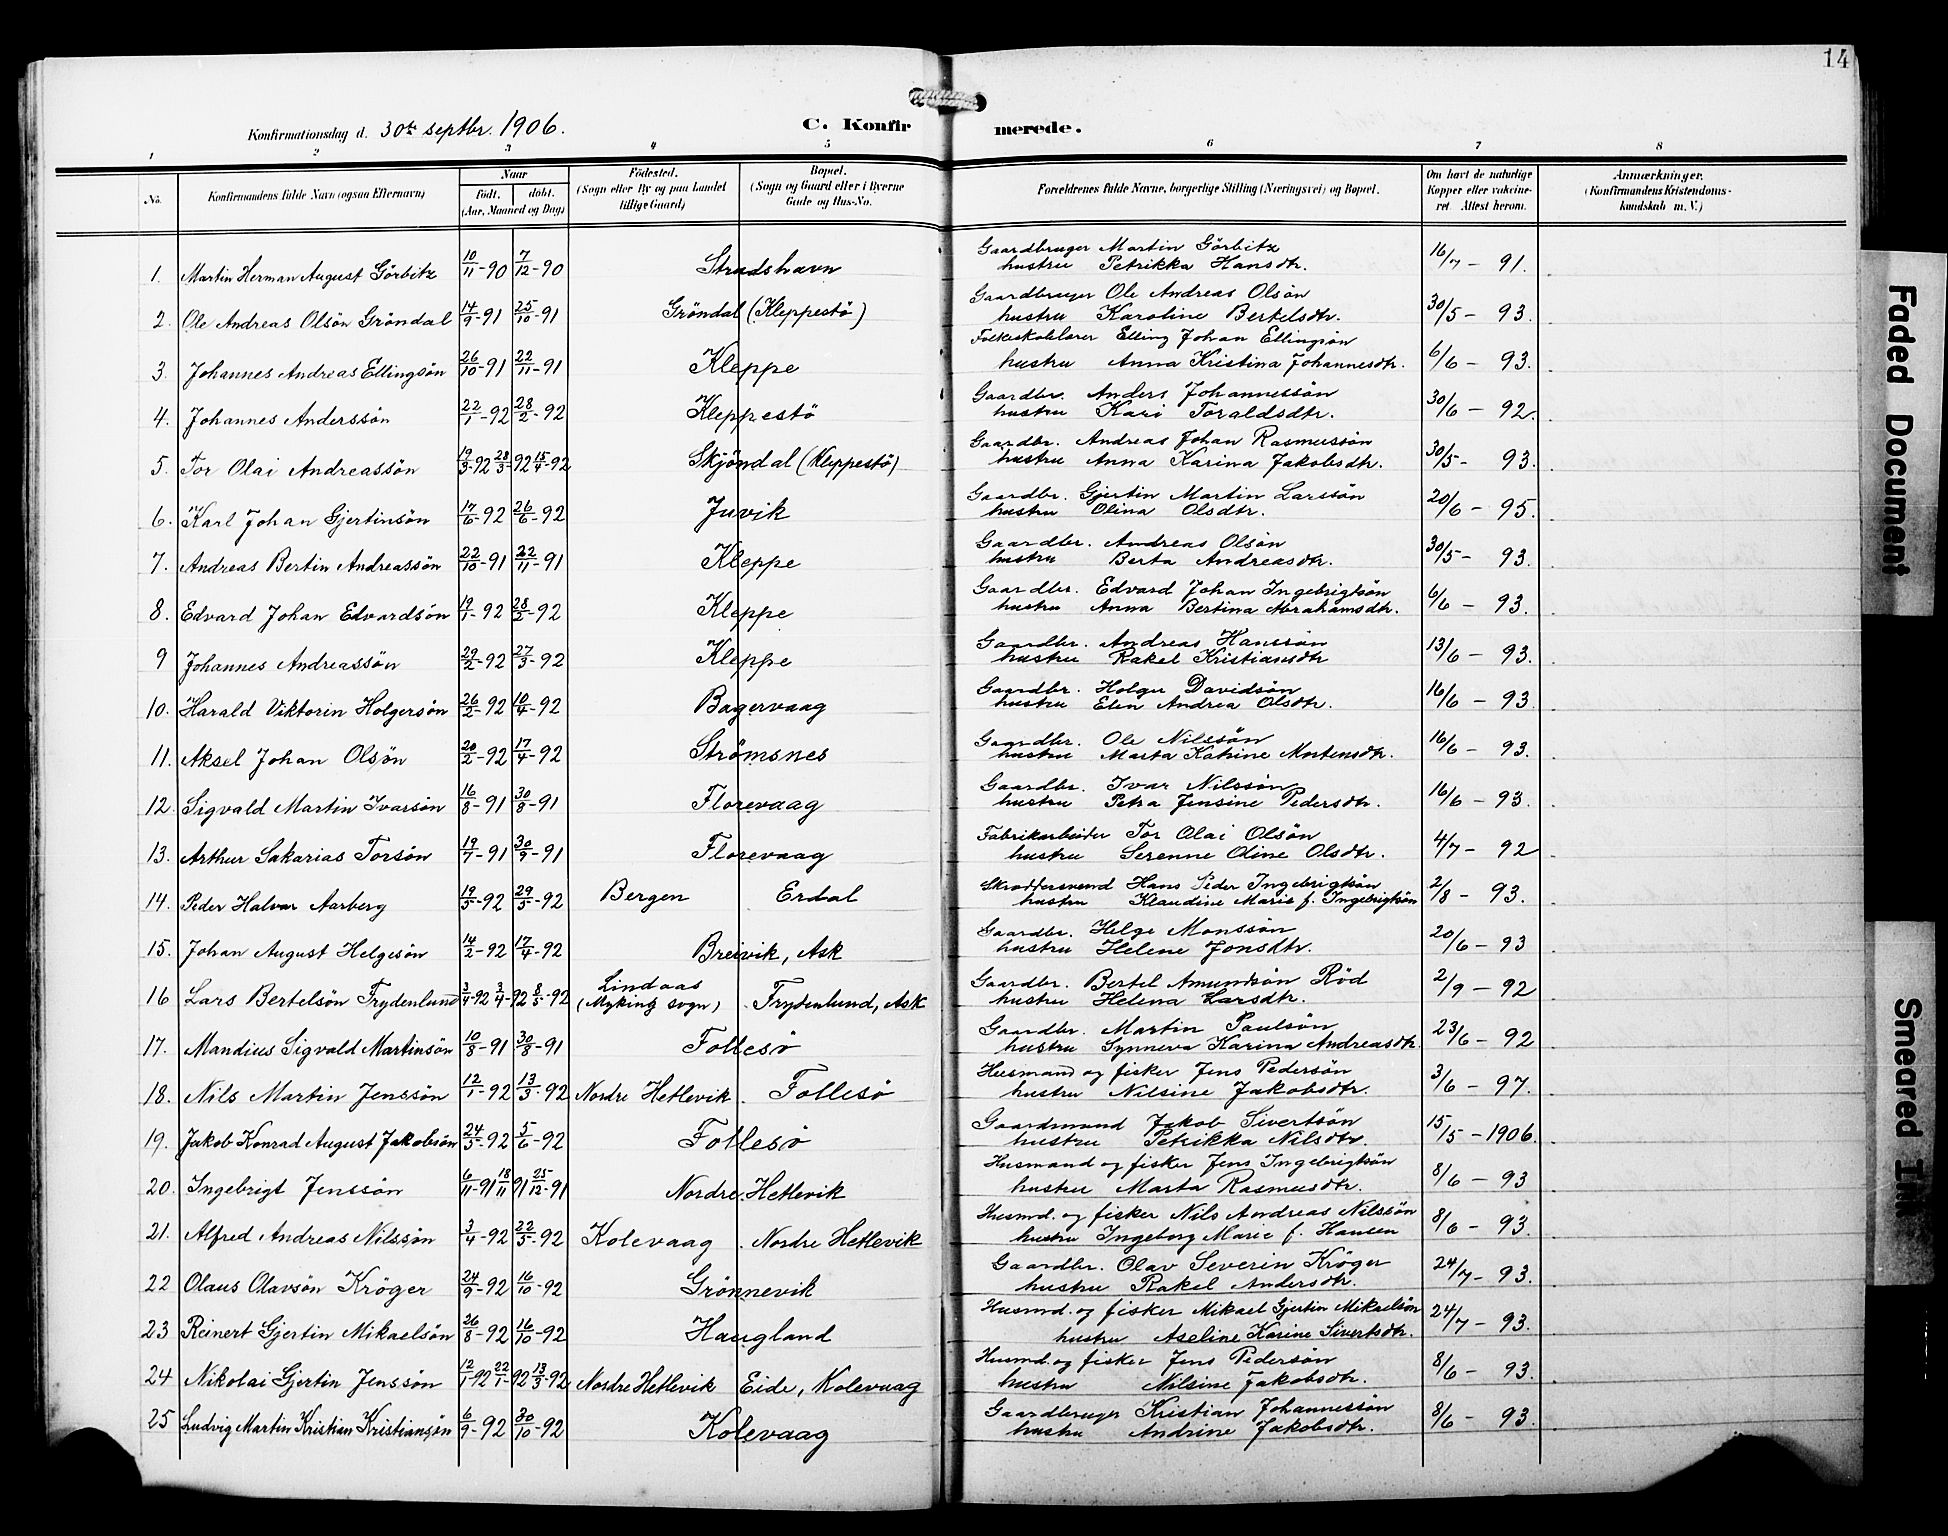 14
Konfirmationsdag d. 30te septbr. 1906.
C. Konfirmerede.
1 2 3 4 5 6 7 8
No. Konfirmandens fulde Navn (ogsaa Efternavn) Naar født. døbt. (Aar, Maaned og Dag) Fødested. (Sogn eller By og paa Landet tillige Gaard) Bopæl. (Sogn og Gaard eller i Byerne Gade og Hus-No. Forældrenes fulde Navne, borgerlige Stilling (Næringsvei) og Bopæl. Om havt de naturlige Kopper eller vakcineret. Attest herom. Anmærkninger. (Konfirmandens Kristendomskundskab m. V.)
1. Martin Herman August Görbitz 10/11-90 7/12-90 Strudshavn Gaardbruger Martin Görbitz hustru Petrikka Hansdtr. 16/7 - 91.
2. Ole Andreas Olsön Gröndal 14/9-91 25/10-91 Gröndal (Kleppestö) Gaardbruger Ole Andreas Olsön hustru Karoline Bertelsdtr. 30/5 - 93.
3. Johannes Andreas Ellingsön 26/10-91 22/11-91 Kleppe Folkeskolelærer Elling Johan Ellingsön hustru Anna Kristina Johannesdtr. 6/6 - 93.
4. Johannes Anderssön 22/1-92 28/2-92 Kleppestö Gaardbr. Anders Johannessön hustru Kari Toraldsdtr. 30/6 - 92.
5. Tor Olai Andreassön 19/3-92 28/3-92 15/4-92 Skjöndal (Kleppestö) Gaardbr. Andreas Johan Rasmussön hustru Anna Karina Jakobsdtr. 30/5 - 93.
6. Karl Johan Gjertinsön 17/6-92 26/6-92 Juvik Gaardbr. Gjertin Martin Larssön hustru Olina Olsdtr. 20/6 - 95.
7. Andreas Bertin Andreassön 22/10-91 22/11-91 Kleppe Gaardbr. Andreas Olsön hustru Berta Andreasdtr. 30/5 - 93.
8. Edvard Johan Edvardsön 19/1-92 28/2-92 Kleppe Gaardbr. Edvard Johan Ingebrigtsön hustru Anna Bertina Abrahamsdtr. 6/6 - 93.
9 Johannes Andreassön 29/2-92 27/3-92 Kleppe Gaardbr. Andreas Hanssön hustru Rakel Kristiansdtr 13/6 - 93.
10. Harald Viktorin Holgersön 26/2-92 10/4-92 Bagervaag Gaardbr. Holger Davidsön hustru Elen Andrea Olsdtr. 16/6 - 93.
11. Aksel Johan Olsön 20/2-92 17/4-92 Strömsnes Gaardbr. Ole Nilssön hustru Marta Katrine Mortensdtr. 16/6 - 93.
12. Sigvald Martin Ivarsön 16/8-91 30/8-91 Florevaag Gaardbr. Ivar Nilssön hustru Petra Jensine Pedersdtr. 16/6 - 93.
13. Arthur Sakarias Torsön 19/7-91 30/9-91 Florevaag Fabrikarbeider Tor Olai Olsön hustru Serenne Oline Olsdtr. 4/7 - 92
14. Peder Halvar Aarberg 19/3-92 29/5-92 Bergen Erdal Skræddersvend Hans Peder Ingebrigtsön hustru Klaudine Marie f. Ingebrigtsön 2/8 - 93.
15. Johan August Helgesön 14/2-92 17/4-92 Breivik, Ask Gaardbr. Helge Monssön hustru Helene Jonsdtr. 20/6 - 93
16 Lars Bertelsön Frydenlund 3/4-92 3/4-92 8/5-92 Lindaas (Myking sogn) Frydenlund, Ask Gaardbr. Bertel Amundsön Röd hustru Helena Larsdtr. 2/9 - 92
17. Mandius Sigvald Martinsön 10/8-91 30/8-91 Follesö Gaardbr. Martin Paulsön hustru Synneva Karina Andreasdtr. 23/6 - 92
18. Nils Martin Jenssön 12/1-92 13/3-92 Nordre Hetlevik Follesö Husmand og fisker Jens Pedersön hustru Nilsine Jakobsdtr. 3/6 - 97.
19. Jakob Konrad August Jakobsön 24/5-92 5/6-92 Follesö Gaardmand Jakob Sivertsön hustru Petrikka Nilsdtr. 15/5 - 1906.
20. Ingebrigt Jenssön 6/11-91 18/11 91 25/12-91 Nordre Hetlevik Husmand og fisker Jens Ingebrigtsön hustru Marta Rasmusdtr. 8/6 - 93
21. Alfred Andreas Nilssön 3/4-92 22/5-92 Kolevaag Nordre Hetlevik Husmd. og fisker Nils Andreas Nilssön hustru Ingeborg Marie f. Hansen 8/6 - 93.
22 Olaus Olavsön Kröger 24/9-92 16/10-92 Grönnevik Gaardbr. Olav Severin Kröger hustru Rakel Andersdtr. 24/7 - 93.
23 Reinert Gjertin Mikaelsön 26/8-92 16/10-92 Haugland Husmd. og fisker Mikael Gjertin Mikaelsön hustru Aseline Karine Sivertsdtr. 24/7 - 93.
24 Nikolai Gjertin Jenssön 12/1-92 22/1-92 13/3-92 Nordre Hetlevik Eide, Kolevaag Husmd. og fisker Jens Pedersön hustru Nilsine Jakobsdtr. 8/6 - 93.
25 Ludvig Martin Kristian Kristiansön 6/9-92 30/10-92 Kolevaag Gaardbruger Kristian Johannessön hustru Andrine Jakobsdtr. 8/6 - 93.
Faded Document
Smeared Ink